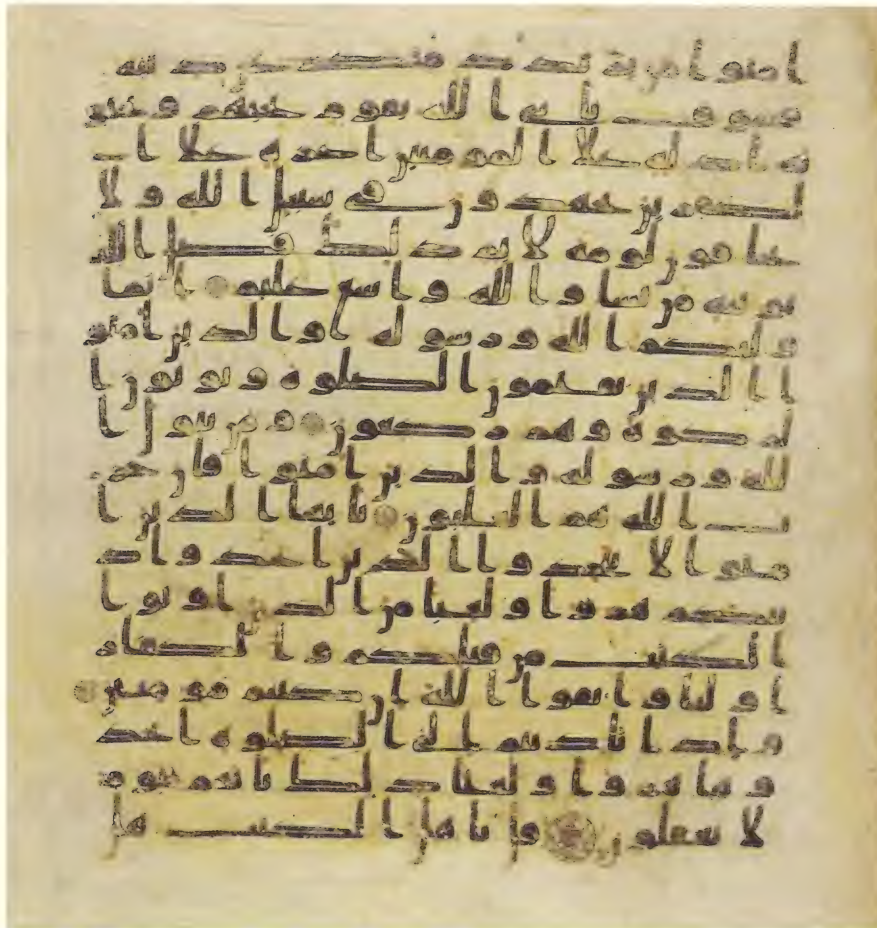 امنوا من يرتدد منكم عن دينه
فسوف ياتى الله بقوم يحبهم ويحبو
نه اذله على المومنين اعزه على ا
لكفرين يجهدون فى سبيل الله ولا
يخافون لومه لايم ذلك فضل الله
يوتيه من يشا والله واسع عليم انما
وليكم الله ورسوله والذين امنو
ا الذين يقيمون الصلوه ويوتون ا
لزكوه وهم ركعون ومن يتول ا
لله ورسوله والذين امنوا فان حز
ب الله هم الغلبون يايها الذين ا
منوا لا تتخذوا الذين اتخذوا د
ينكم هزوا ولعبا من الذين اوتوا
الكتب من قبلكم والكفار
اوليا واتقوا الله ان كنتم مومنين
واذا ناديتم الى الصلوه اتخذ
وها هزوا ولعبا ذلك بانهم قوم
لا يعقلون قل ياهل الكتب هل